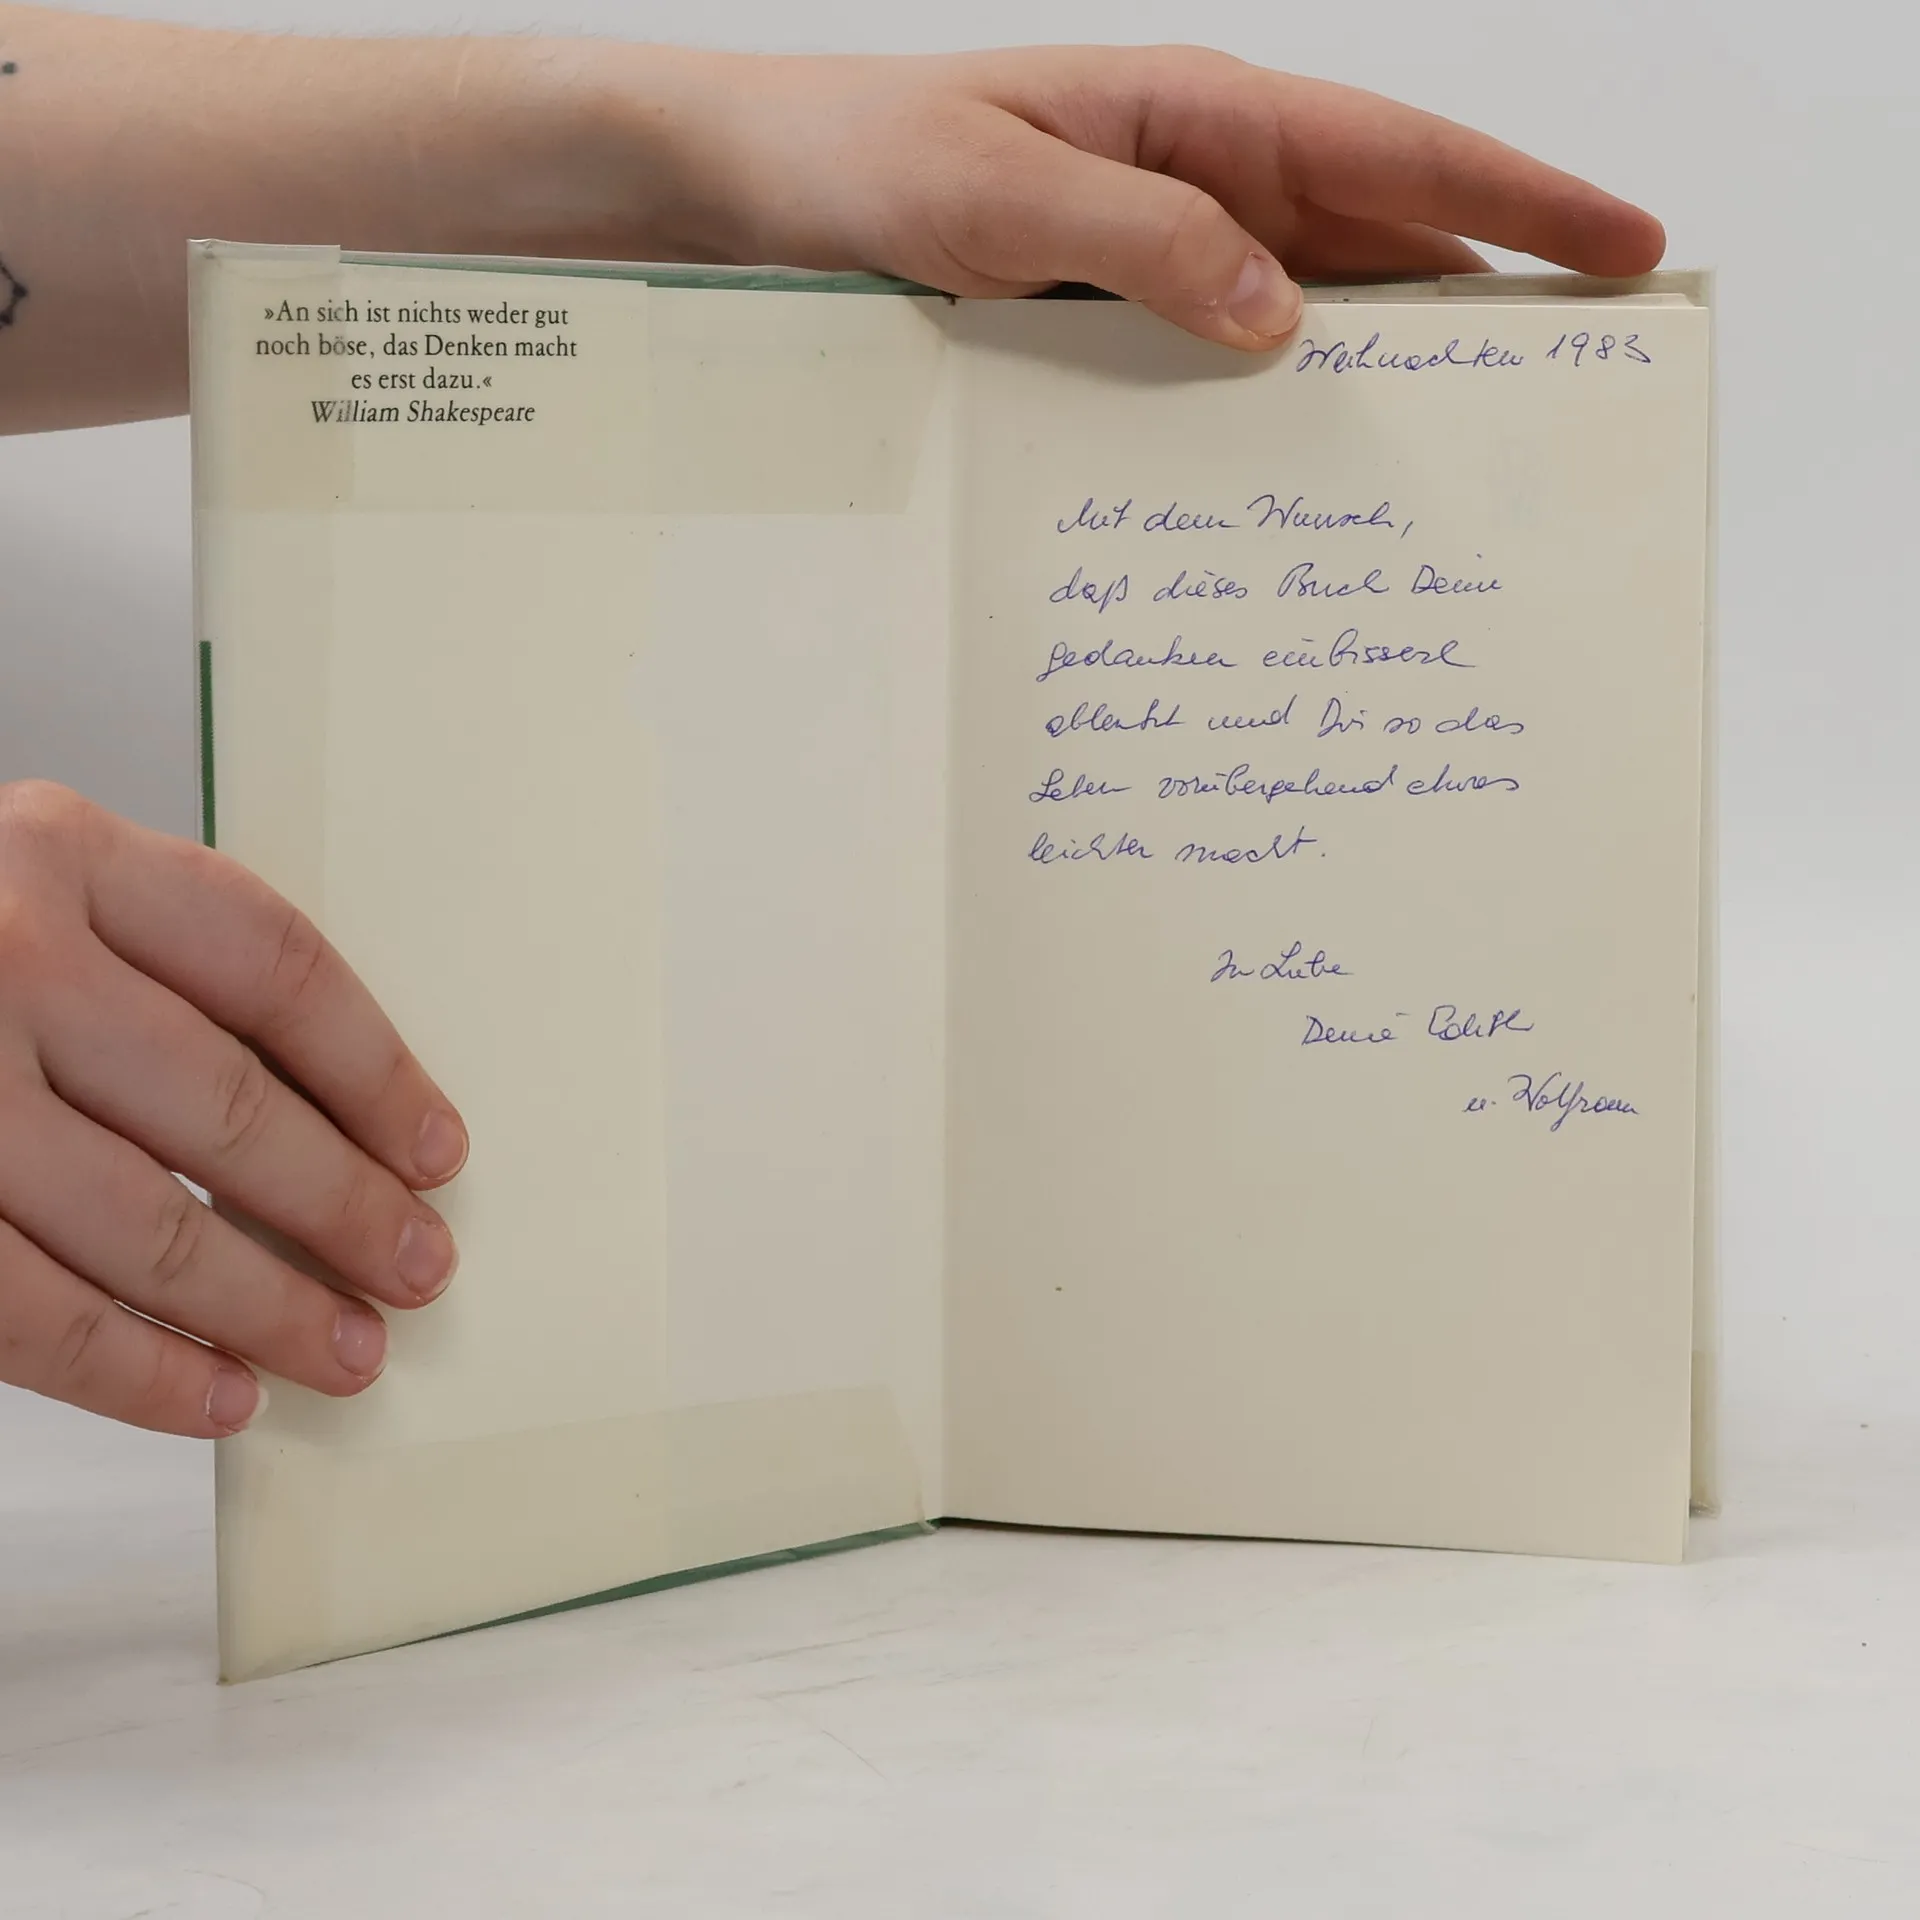 »An sich ist nichts weder gut
noch böse, das Denken macht
es erst dazu.«
William Shakespeare
Weihnachten 1983
Mit dem Wunsch,
daß dieses Buch Deine
gedanken ein bisserl
ablenkt und Dir so das
Leben vorübergehend etwas
leichter macht.
In Liebe
Deine Edith
u. Wolfram